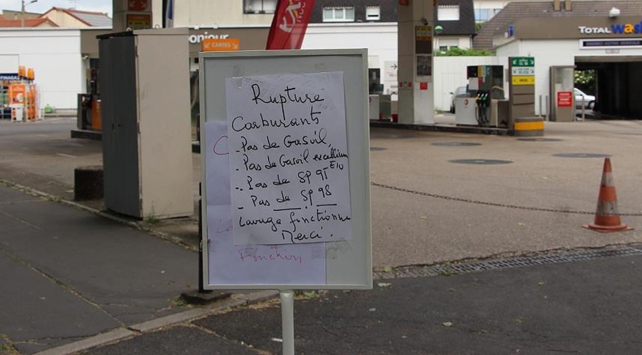 TOTAL wash
bonjour
Rupture
Carburants
- Pas de Gasoil,
- Pas de Gasoil excellium
- Pas de SP 95 E10
- Pas de SP 98
Lavage fonctionne
Merci.